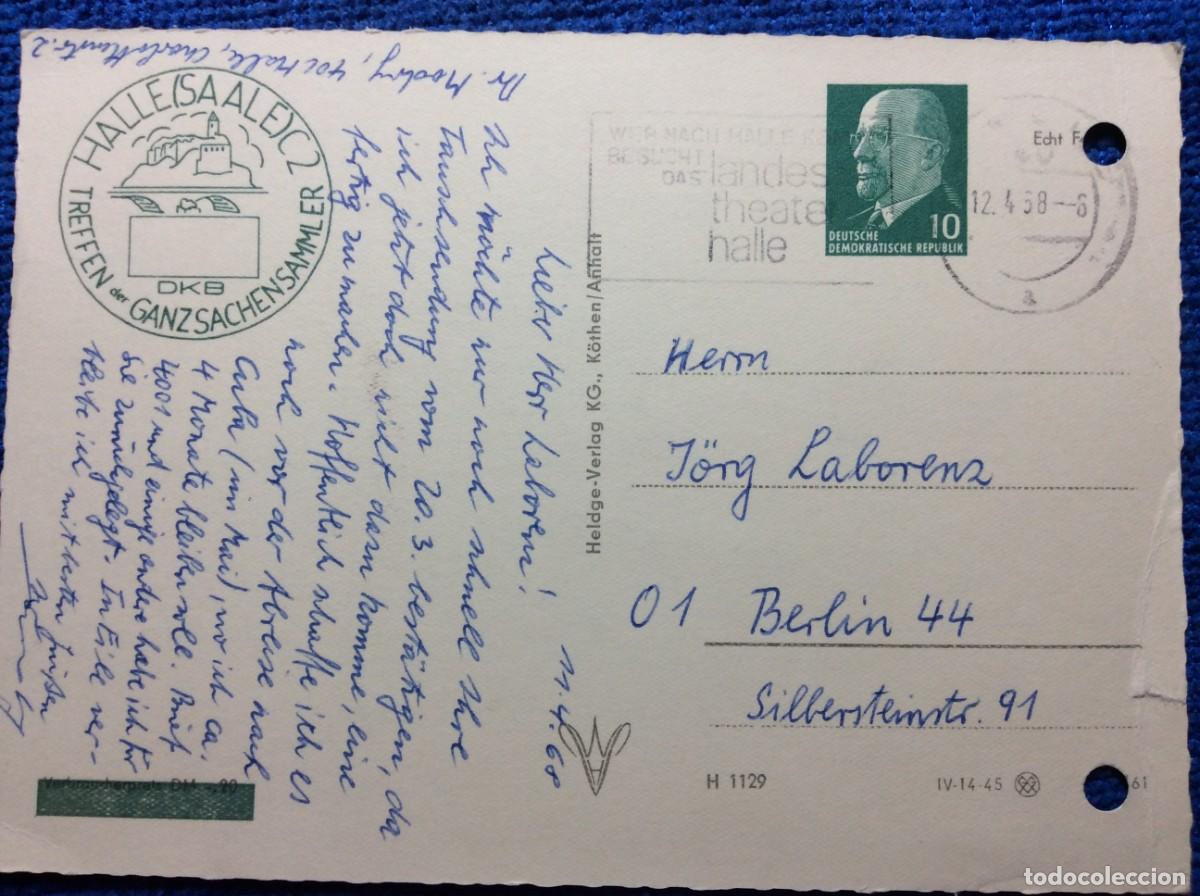 Dr. Mockry, 402 Halle, Charlottenstr. 2
HALLE (SAALE) C2
TREFFEN der GANZSACHENSAMMLER
DKB
11.4.68
Lieber Herr Laborenz!
Ich möchte nur noch schnell Ihre
Tauschsendung vom 20.3. bestätigen, da
ich jetzt doch nicht dazu komme, eine
fertig zu machen. Hoffentlich schaffe ich es
noch vor der Abreise nach
Cuba (im Mai), wo ich ca.
4 Monate bleiben soll. Brief
4001 und einige andere habe ich für
Sie zurückgelegt. In Eile ver-
bleibe ich mit besten Grüßen
Verbraucherpreis DM -,20
Heldge-Verlag KG., Köthen/Anhalt
WER NACH HALLE
BESUCHT
DAS landes
theate
halle
DEUTSCHE
DEMOKRATISCHE REPUBLIK
10
12.4.68--8
a
Echt F
Herrn
Jörg Laborenz
01 Berlin 44
Silbersteinstr. 91
H 1129
IV-14-45
61
todocoleccion